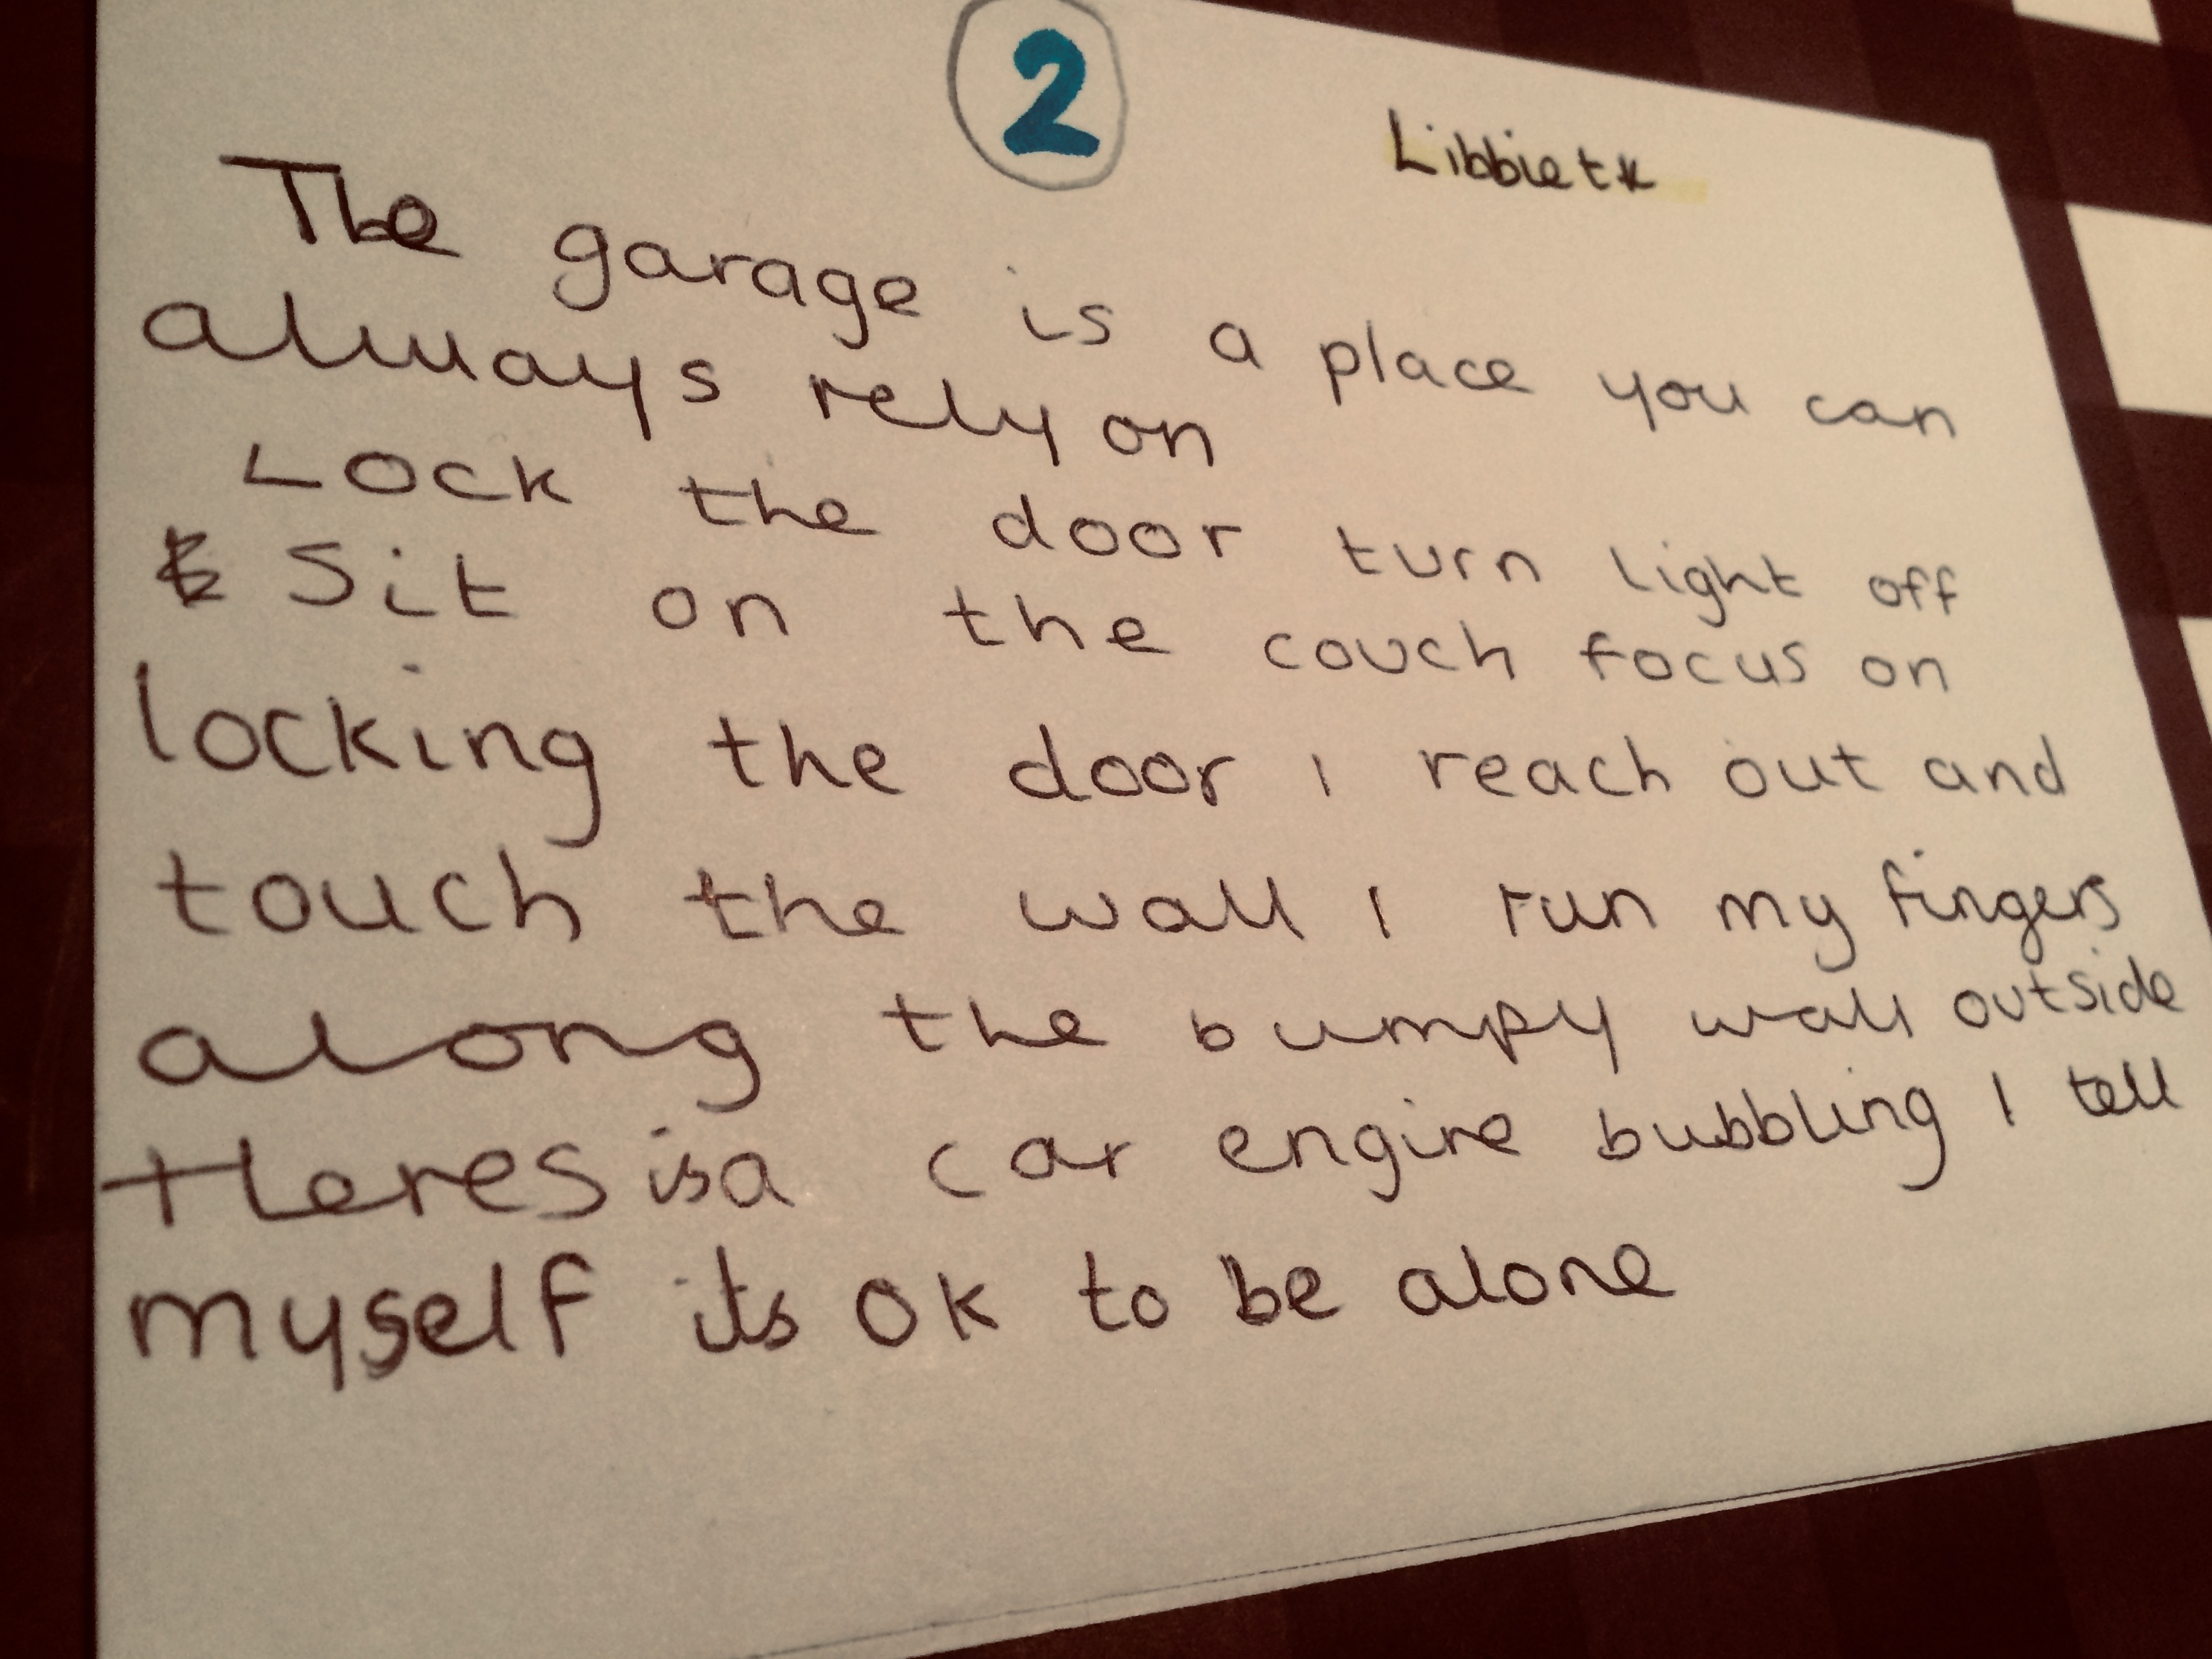 2
Libbietk
The garage is a place you can
always rely on
Lock the door turn light off
& Sit on the couch focus on
locking the door I reach out and
touch the wall I run my fingers
along the bumpy wall outside
theres is a car engine bubbling I tell
myself its ok to be alone